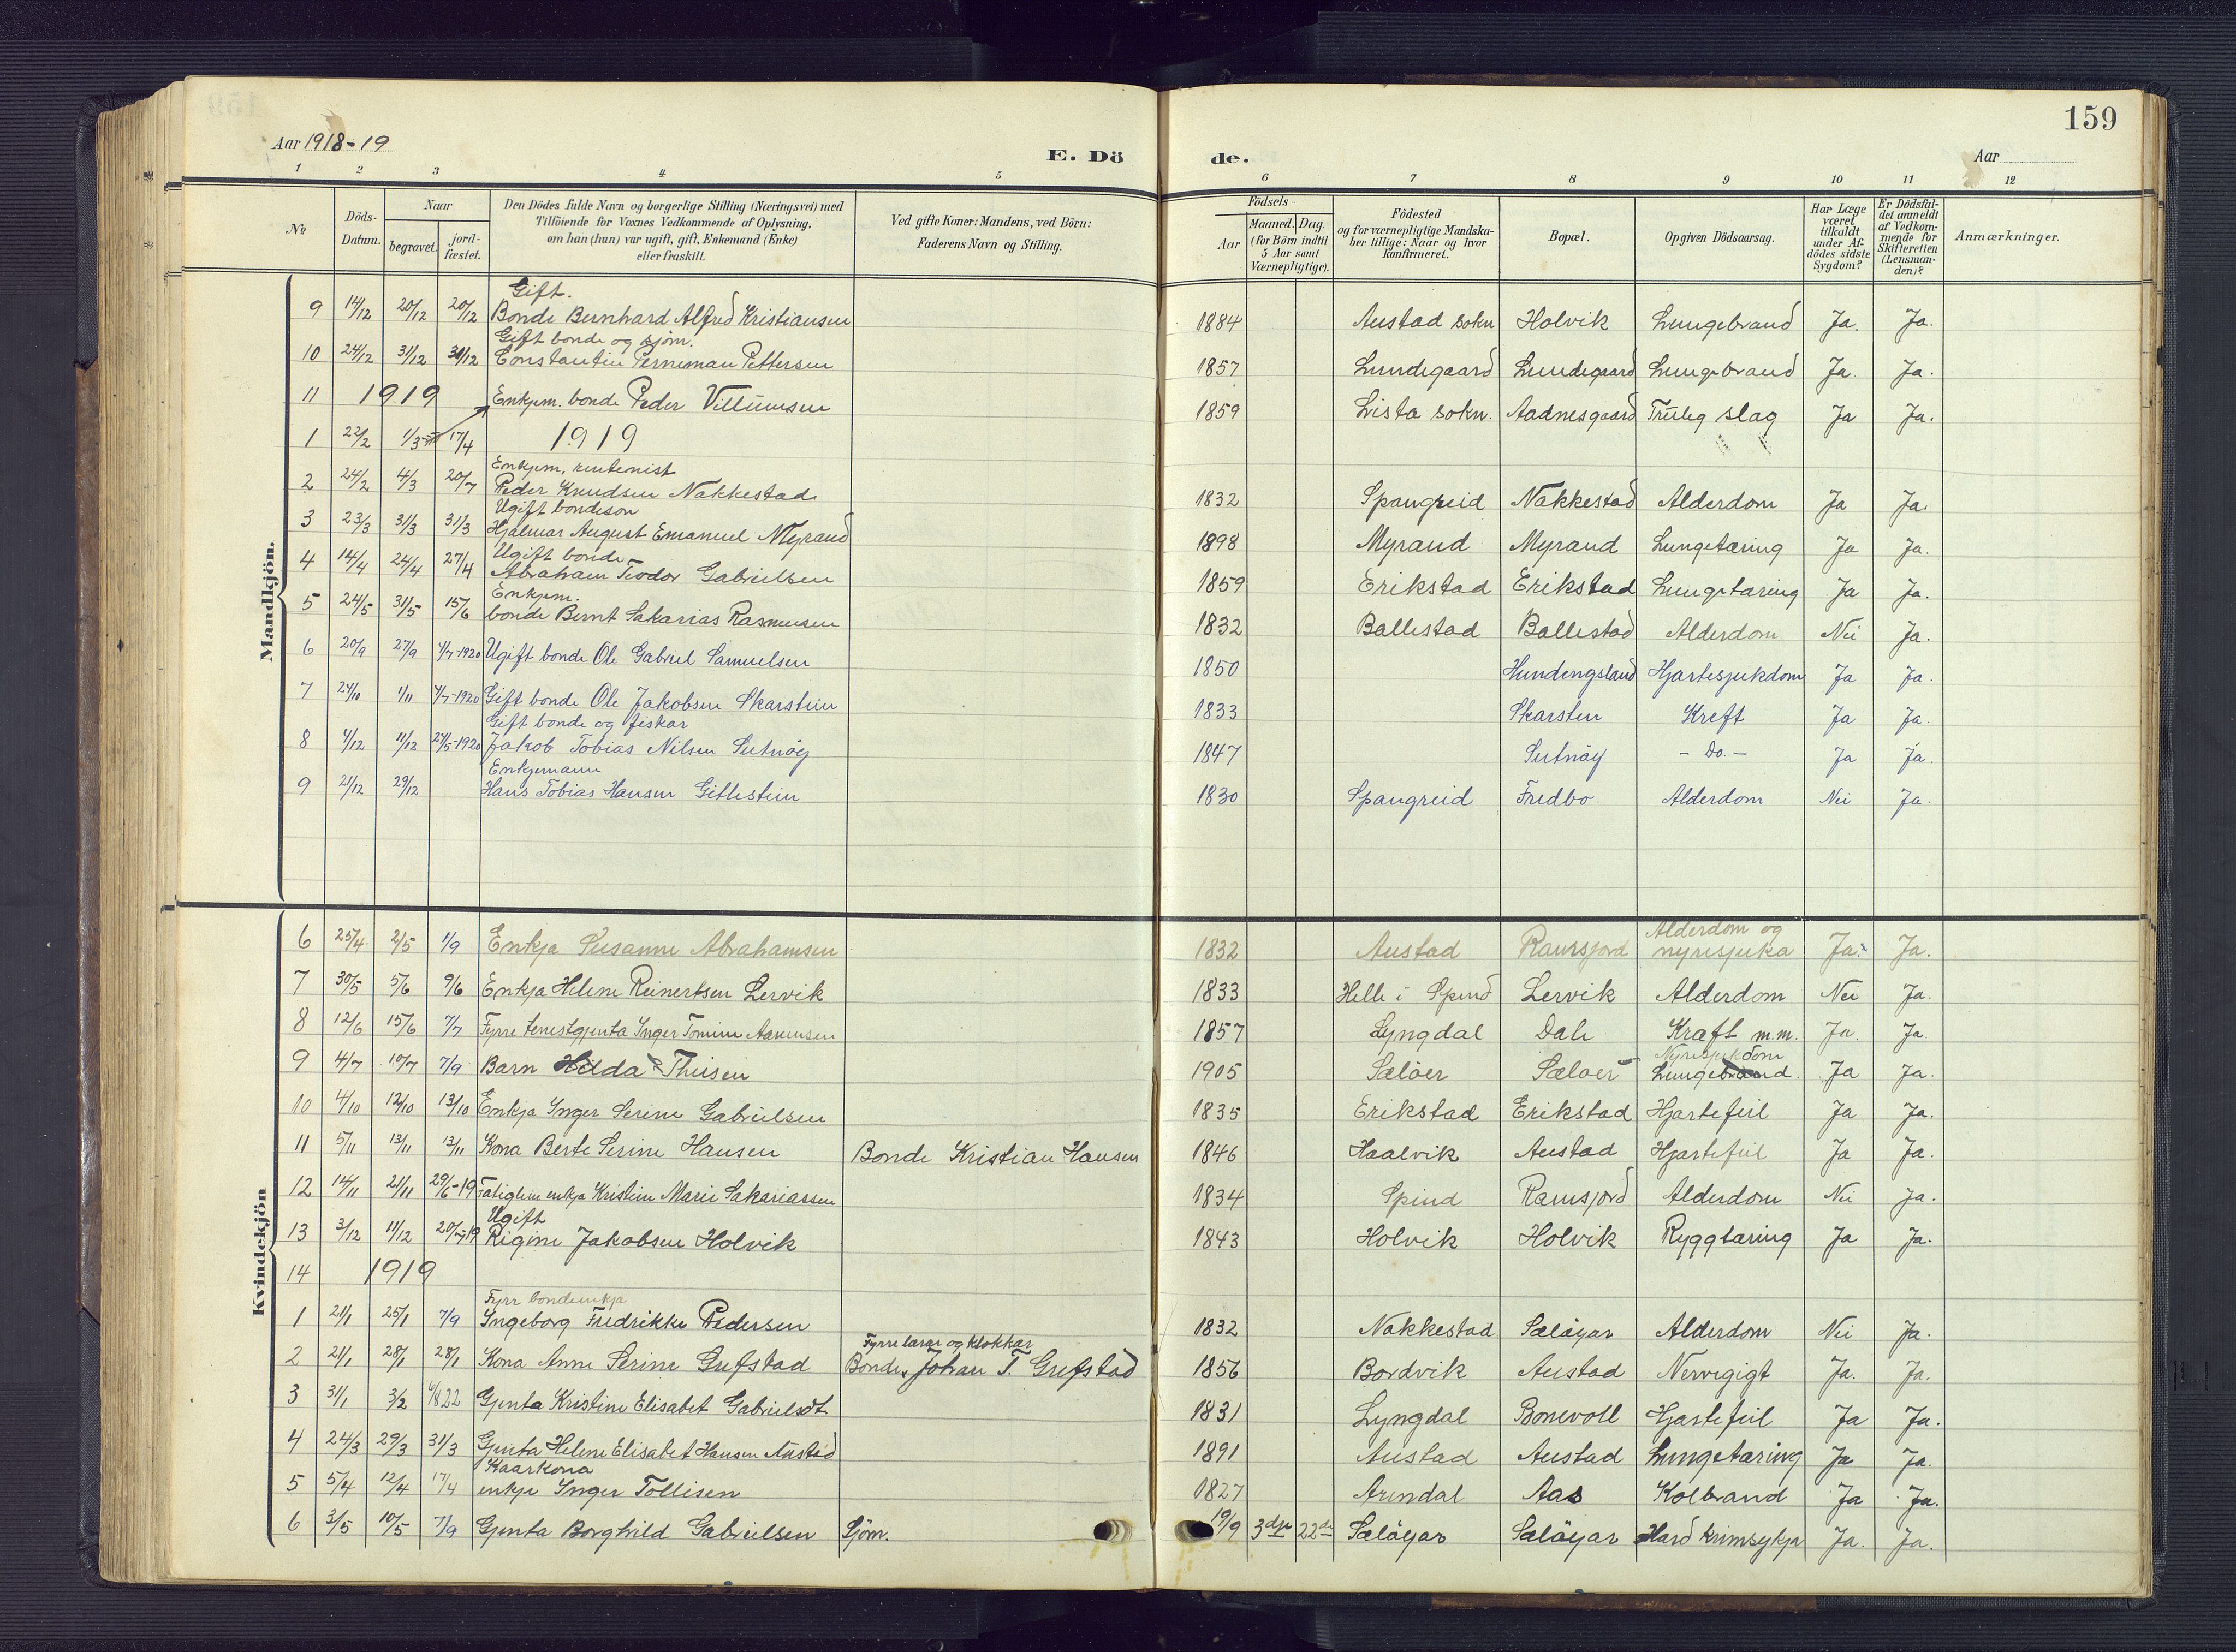 159
Aar 1918-19
E. Dö
de.
Aar
1 2 3 4 5 6 7 8 9 10 11 12
№
Döds-Datum.
Naar
begravet.
jord-fæstet.
Den Dödes fulde Navn og borgerlige Stilling (Næringsvei) med
Tilföiende for Voxnes Vedkommende af Oplysning,
om han (hun) var ugift, gift, Enkemand (Enke)
eller fraskilt.
Ved gifte Koner: Mandens, ved Börn:
Faderens Navn og Stilling.
Födsels-
Aar
Maaned. Dag.
(for Börn indtil 5 Aar samt Værnepligtige).
Födested
og for værnepligtige Mandska-
ber tillige: Naar og hvor
konfirmeret.
Bopæl.
Opgiven Dödsaarsag.
Har Læge været tilkaldt under Af-dödes sidste Sygdom?
Er Dödsfal-det anmeldt af Vedkom-mende for Skifteretten (Lensman-den)?
Anmærkninger.
Mandkjön.
Gift.
9 14/12 20/12 20/12 Bonde Bernhard Alfred Kristiansen 1884 Austad sokn Holvik Lungebrand Ja. Ja.
Gift bonde og sjöm.
10 24/12 31/12 31/12 Constantin Perneman Pettersen 1857 Lundegaard Lundegaard Lungebrand Ja Ja.
11 1919 Enkjem. bonde Peder Villumsen 1859 Lista sokn. Aadnesgaard Truleg slag Ja Ja.
1 22/2 1/3 17/4 1919
Enkjem, rentenist
2 24/2 4/3 20/7 Peder Knudsen Nakkestad 1832 Spangreid Nakkestad Alderdom Ja Ja.
Ugift bondeson
3 23/3 31/3 31/3 Hjalmar August Emanuel Myrand 1898 Myrand Myrand Lungetæring Ja Ja.
Ugift bonde
4 14/4 24/4 27/4 Abraham Teodor Gabrielsen 1859 Erikstad Erikstad Lungetæring Ja Ja.
Enkjem.
5 24/5 31/5 15/6 bonde Bernt Sakarias Rasmusen 1832 Ballestad Ballestad Alderdom Nei Ja.
6 20/9 27/9 4/7-1920 Ugift bonde Ole Gabriel Samuelsen 1850 Hundengsland Hjartesjukdom Ja Ja.
7 24/10 1/11 4/7-1920 Gift bonde Ole Jakobsen Skarstein 1833 Skarsten Kreft Ja Ja.
Gift bonde og fiskar
8 4/12 11/12 24/5-1920 Jakob Tobias Nilsen Setnöy 1847 Setnöy - Do. - Ja Ja.
Enkjemann
9 21/12 29/12 Hans Tobias Hansen Gitlestein 1830 Spangreid Fredbo. Alderdom Nei Ja.
Kvindekjön
Alderdom og
6 25/4 2/5 1/9 Enkja Susanne Abrahamsen 1832 Austad Ramsjord nyresjuka Ja. Ja.
7 30/5 5/6 9/6 Enkja Helene Reinertsen Lervik 1833 Helle i Spind Lervik Alderdom Nei Ja.
8 12/6 15/6 7/7 Fyrre tenestgjenta Inger Tomine Aanensen 1857 Lyngdal Dale Kræft m.m. Ja. Ja.
Nyresjukdom
9 4/7 10/7 7/9 Barn Hilda Theisen 1905 Selöer Sæloer Lungebrand. Ja Ja.
10 4/10 12/10 13/10 Enkja Inger Serine Gabrielsen 1835 Erikstad Erikstad Hjartefeil Ja Ja.
11 5/11 13/11 13/11 Kona Berte Serine Hansen Bonde Kristian Hansen 1846 Haalvik Austad Hjartefeil Ja Ja.
12 14/11 21/11 29/6-19 Fatiglem enkja Kristine Marie Sakariassen 1834 Spind Ramsjord Alderdom Nei Ja.
Ugift
13 3/12 11/12 20/7-19 Rigine Jakobsen Holvik 1843 Holvik Holvik Ryggtæring Ja Ja.
14 1919
Fyrr bondeenkja
1 21/1 25/1 7/9 Ingeborg Fredrikke Pedersen 1832 Nakkestad Sælöyar Alderdom Nei Ja.
Fyrre lærar og klokkar
2 21/1 28/1 28/1 Kona Anne Serine Grefstad Bonde, Johan T. Grefstad 1856 Bordvik Austad Nervegigt Ja. Ja.
3 31/1 3/2 4/8 22 Gjenta Kristine Elisabet Gabrielsdt 1831 Lyngdal Bonevoll Hjartefeil Ja Ja.
4 24/3 29/3 31/3 Gjenta Helene Elisabet Hansen Austad 1891 Austad Austad Lungetæring Ja Ja.
Kaarkona
5 5/4 12/4 17/4 enkje Inger Tollisen 1827 Arendal Aas Kolbrand Ja Ja.
6 3/5 10/5 7/9 Gjenta Borghild Gabrielsen Sjöm. 19/9 3dje 22de Sælöyar Sælöyar Hard krimsykja Ja. Ja.